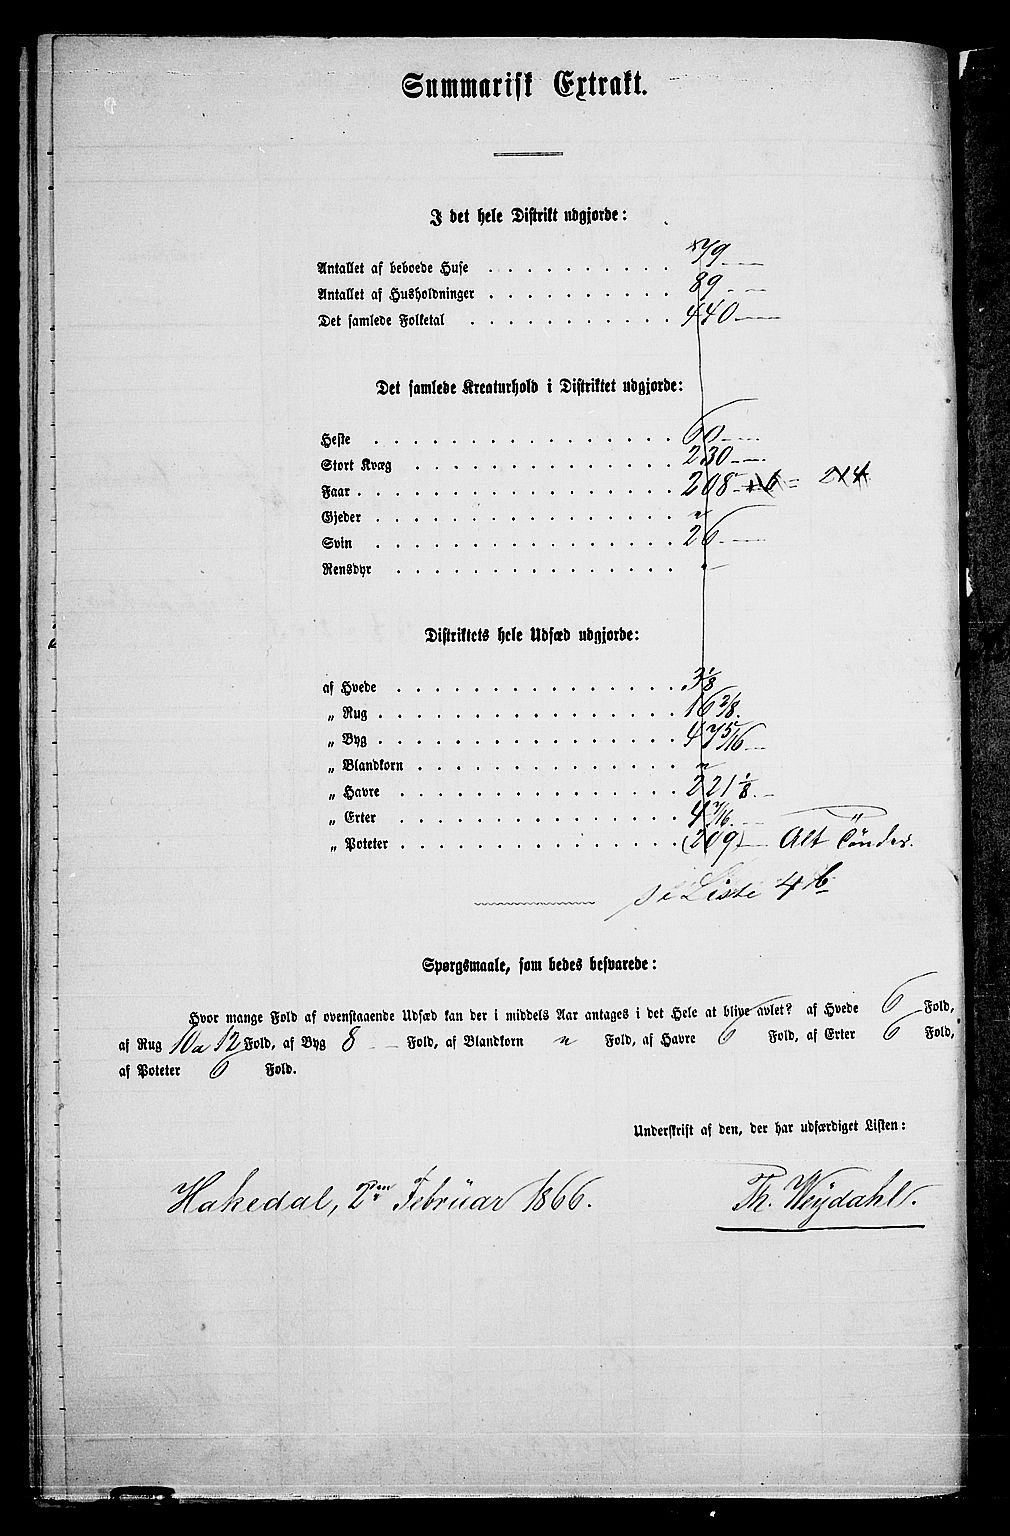 Summarisk Extrakt.
I det hele Distrikt udgjorde:
Antallet af beboede Huse . . . . . . . . . . 79
Antallet af Husholdninger . . . . . . . . . . 89
Det samlede Folketal . . . . . . . . . . . 440
Det samlede Kreaturhold i Distriktet udgjorde:
Heste . . . . . . . . . . . . . . . . . . 60
Stort Kvæg . . . . . . . . . . . . . . . . 230
Faar . . . . . . . . . . . . . . . . . . . 208 + 6 = 214
Gjeder . . . . . . . . . . . . . . . . . . "
Svin . . . . . . . . . . . . . . . . . . 26
Rensdyr . . . . . . . . . . . . . . . . .
Distriktets hele Udsæd udgjorde:
af Hvede . . . . . . . . . . . . . . . . 3 1/8
„ Rug . . . . . . . . . . . . . . . . . 16 2/8.
„ Byg . . . . . . . . . . . . . . . . . 47 5/16
„ Blandkorn . . . . . . . . . . . . . . . "
„ Havre . . . . . . . . . . . . . . . . 221 1/8.
„ Erter . . . . . . . . . . . . . . . . 4 7/16.
„ Poteter . . . . . . . . . . . . . . . . (209) Alt Tönder.
se Liste 4 b
Spørgsmaale, som bedes besvarede:
Hvor mange Fold af ovenstaaende Udsæd kan der i middels Aar antages i det Hele at blive avlet? af Hvede 6 Fold,
af Rug 10 a 12 Fold, af Byg 8 Fold, af Blandkorn " Fold, af Havre 6 Fold, af Erter 6 Fold,
af Poteter 6 Fold.
Underskrift af den, der har udfærdiget Listen:
Hakedal, 2den Februar 1866. Th. Weydahl.